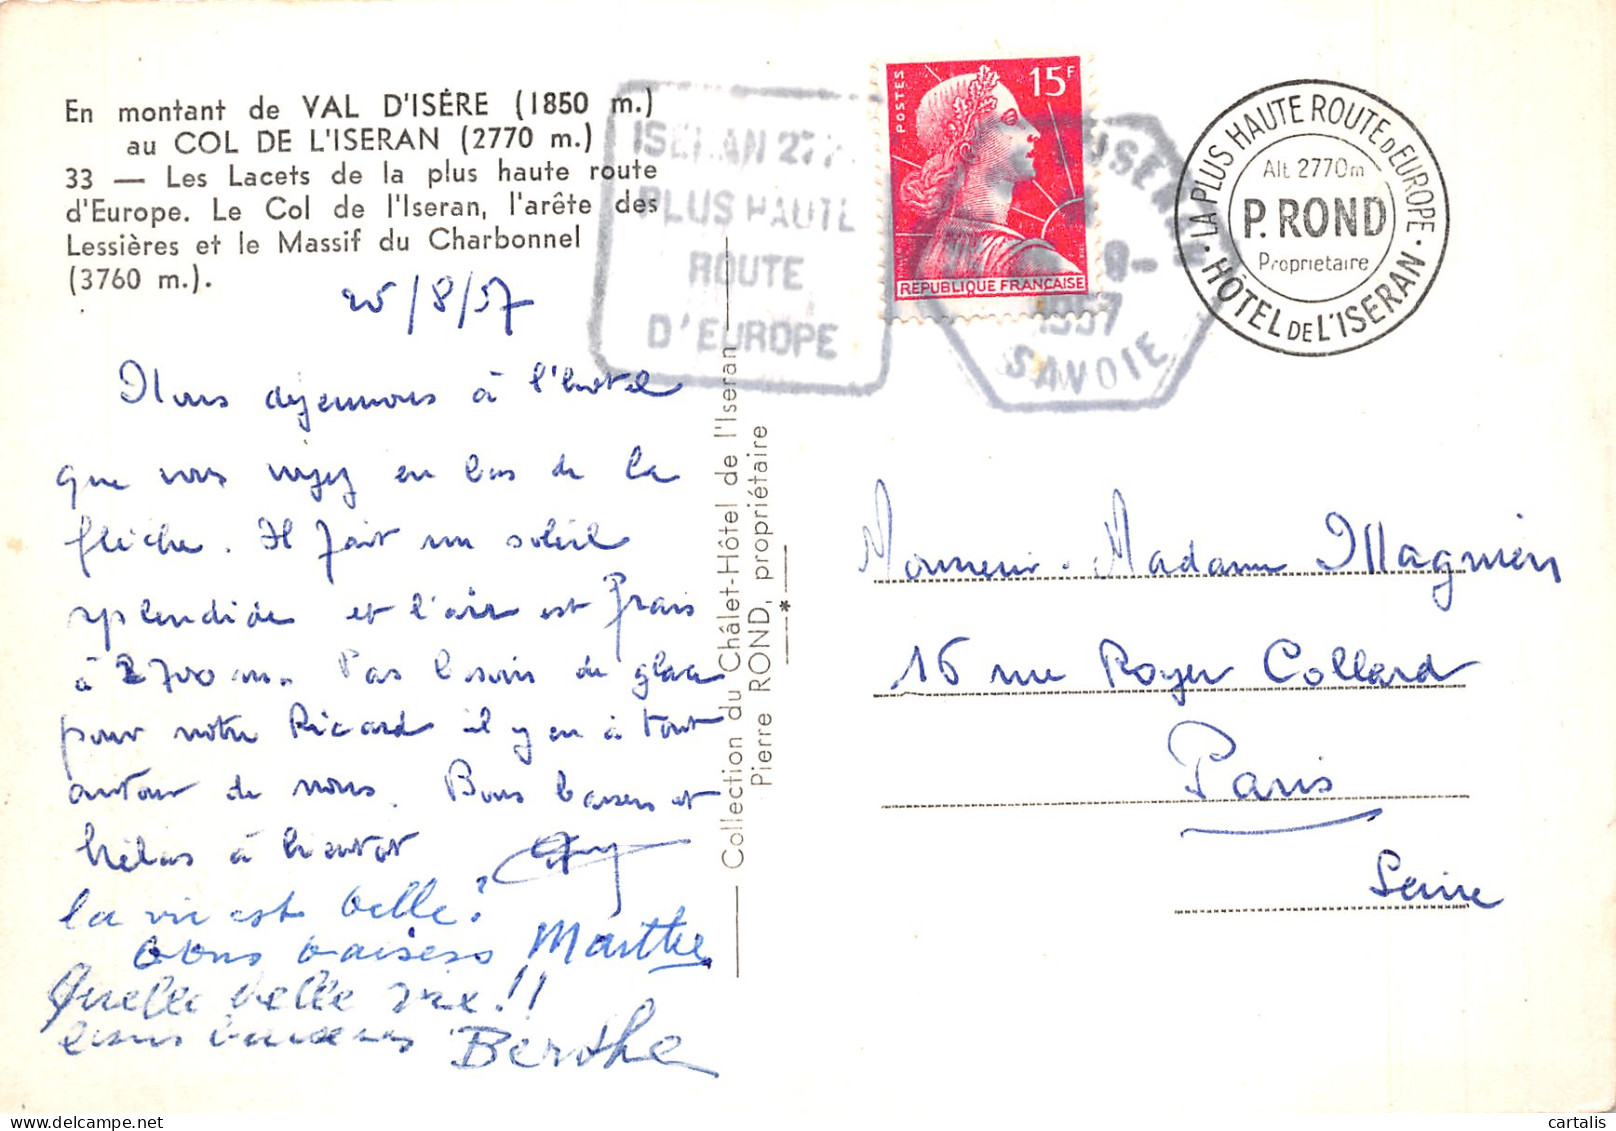 En montant de VAL D'ISÈRE (1850 m.)
au COL DE L'ISERAN (2770 m.)
33 — Les Lacets de la plus haute route
d'Europe. Le Col de l'Iseran, l'arête des
Lessières et le Massif du Charbonnel
(3760 m.).
25/8/57
Nous déjeunons à l'hôtel
que vous voyez en bas de la
flèche. Il fait un soleil
splendide et l'air est frais
à 2700 m. Pas besoin de glace
pour notre Ricard il y en a tout
autour de nous. Bons baisers et
hélas à bientot
la vie est belle!
bons baisers Marthe
Quelle belle vie!!
bons baisers Berthe
Collection du Châlet-Hôtel de l'Iseran
Pierre ROND, propriétaire
*
ISERAN 277
PLUS HAUTE
ROUTE
D'EUROPE
POSTES
15F
REPUBLIQUE FRANÇAISE
1957
SAVOIE
LA PLUS HAUTE ROUTE D'EUROPE
Alt. 2770m
P. ROND
Propriétaire
HÔTEL DE L'ISERAN
Monsieur. Madame Magnien
16 rue Royer Collard
Paris
Seine
cartalis